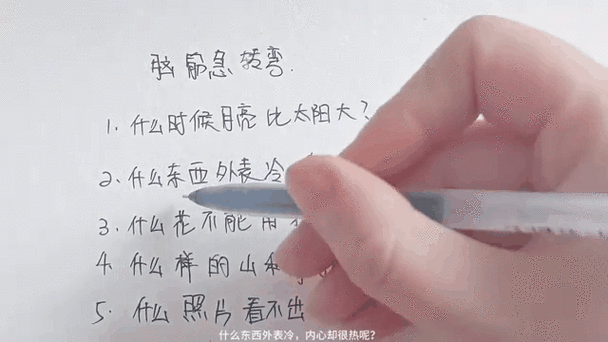 脑筋急转弯.
1. 什么时候月亮比太阳大?
2. 什么东西外表冷
3. 什么花不能用
4. 什么样的山和
5. 什么照片看不出
什么东西外表冷,内心却很热呢?